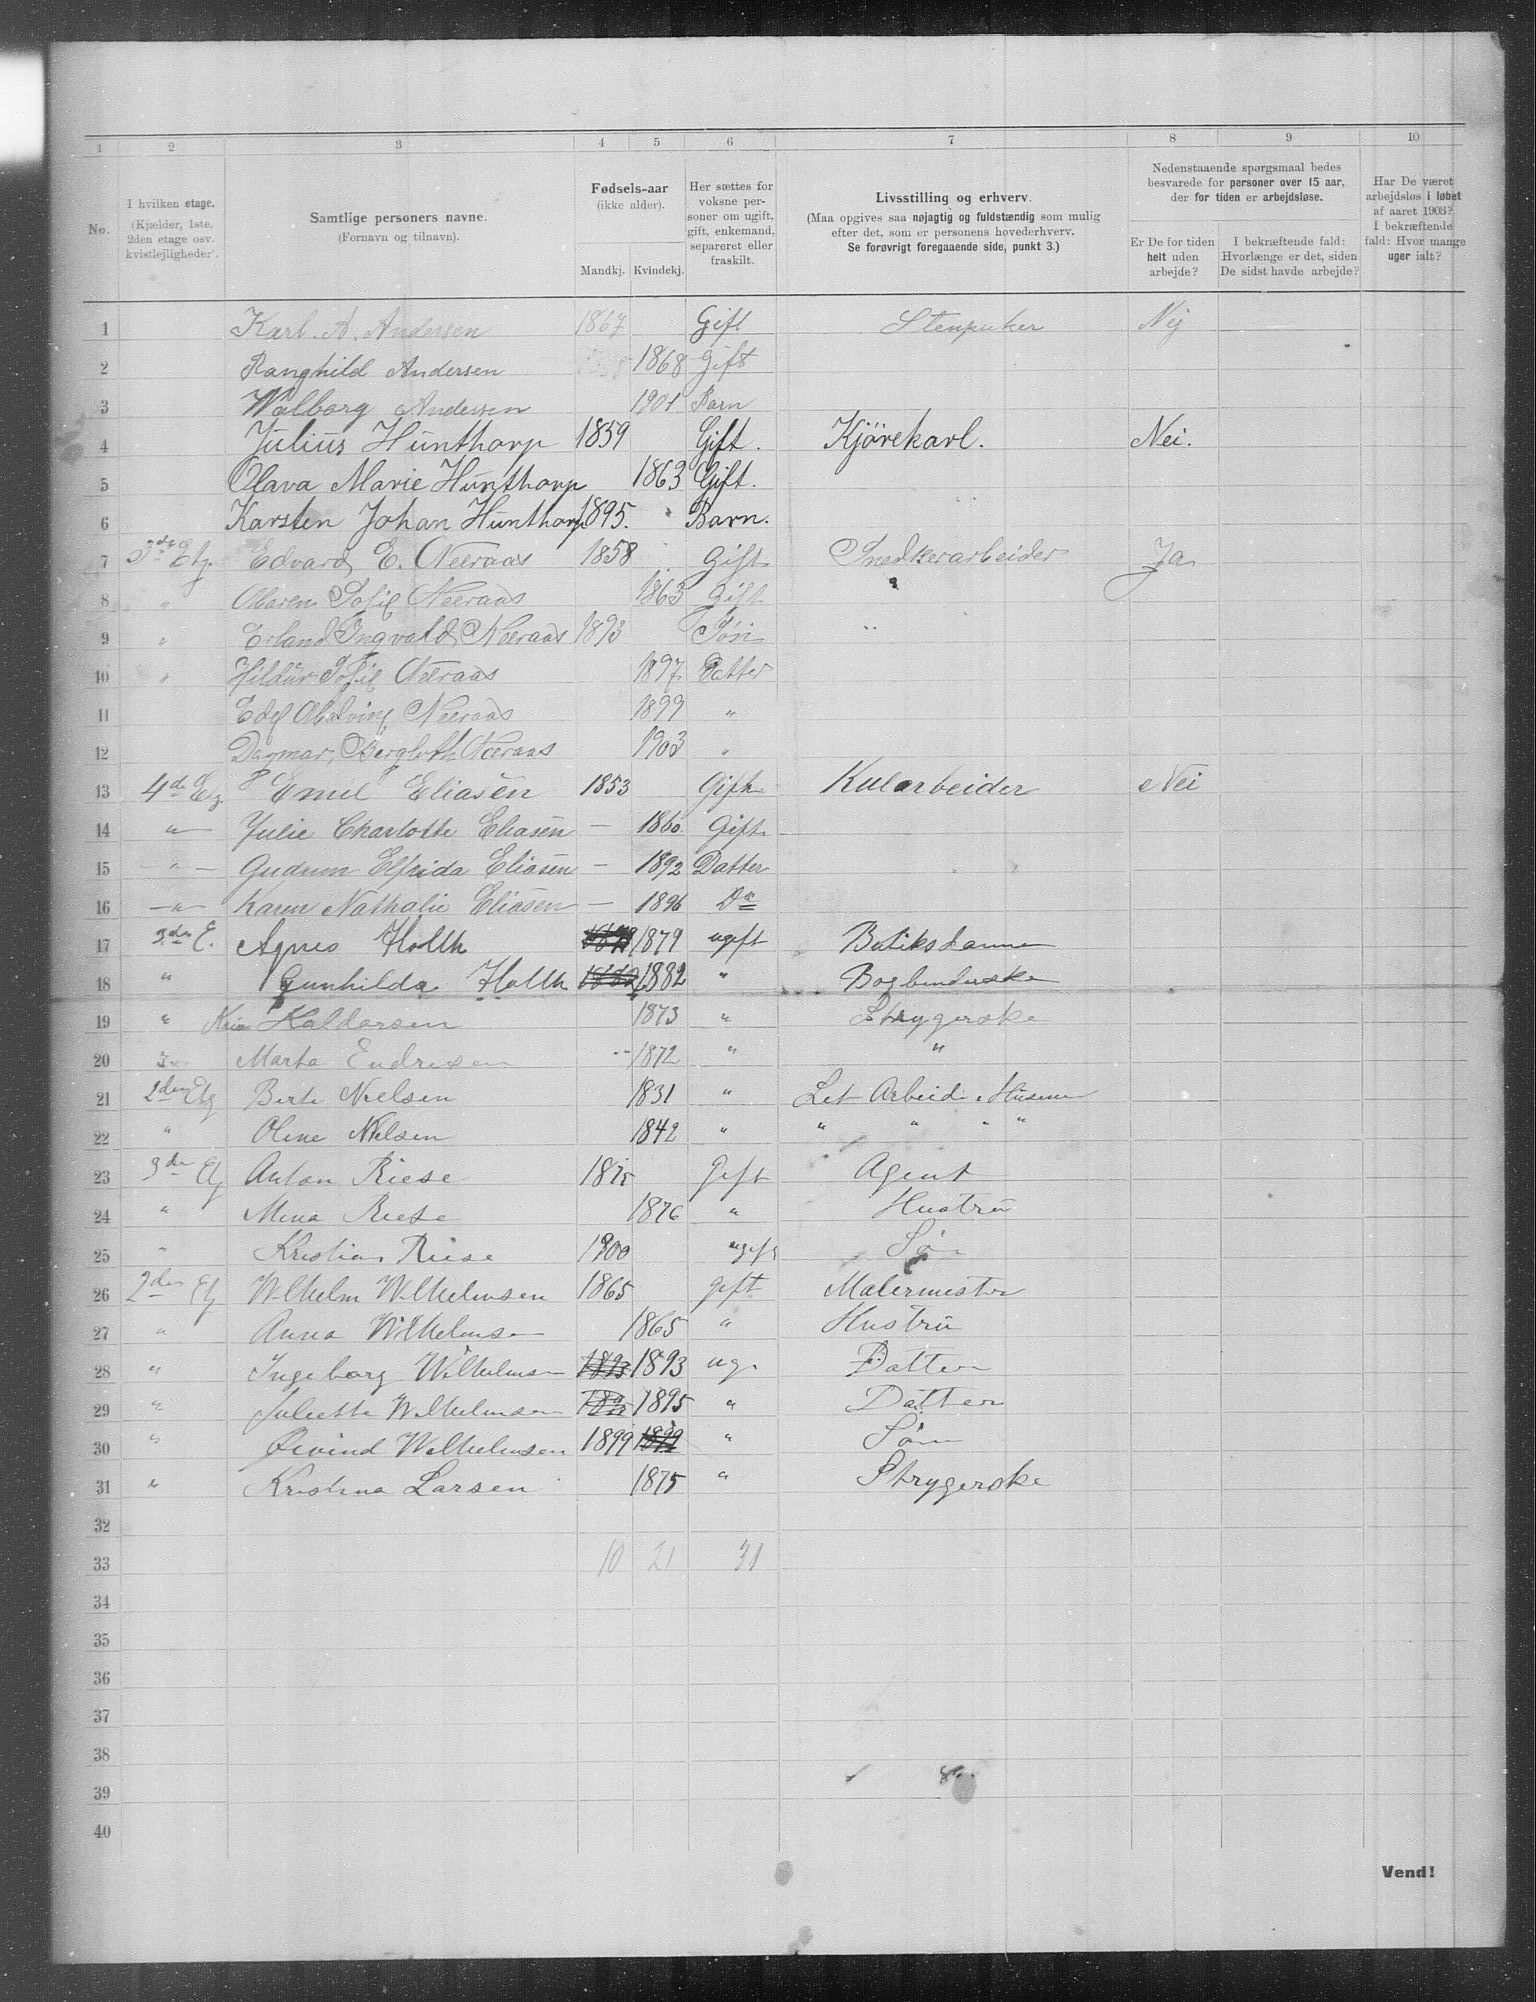 1 2 3 4 5 6 7 8 9 10
No.
I hvilken etage. (Kjælder, 1ste, 2den etage osv. kvistlejligheder.
Samtlige personers navne. (Fornavn og tilnavn).
Fødsels-aar (ikke alder).
Mandkj. Kvindekj.
Her sættes for voksne personer om ugift, gift, enkemand, separeret eller fraskilt.
Livsstilling og erhverv. (Maa opgives saa nøjagtig og fuldstændig som mulig efter det, som er personens hovederhverv. Se forøvrigt foregaaende side, punkt 3.)
Nedenstaaende spørgsmaal bedes besvarede for personer over 15 aar, der for tiden er arbejdsløse.
Er De for tiden helt uden arbejde?
I bekræftende fald: Hvorlænge er det, siden De sidst havde arbejde?
Har De været arbejdsløs i løbet af aaret 1903? I bekræftende fald: Hvor mange uger ialt?
1 Karl. A. Andersen 1867 Gift Stenpuker Nej
2 Ranghild Andersen 1868 Gift
3 Walborg Andersen 1901 Barn
4 Julius Hunthorp 1859 Gift. Kjørekarl. Nei.
5 Olava Marie Hunthorp 1863 Gift.
6 Karsten Johan Hunthorp 1895. Barn.
7 3de Etg. Edvard E. Neeraas 1858 Gift Snedkerarbeider Ja
8 " Maren Sofie Neeraas 1863 Gift
9 " Erland Ingvald Neeraas 1893 Søn
10 " Hildur Sofie Neeraas 1897 Datter
11 Neeraas 1899 "
12 Dagmar Bergloth Neeraas 1903 "
13 4de Etg Emil Eliasen 1853 Gift. Kularbeider Nei
14 — " — Julie Charlotte Eliasen — 1860 Gift
15 — " — Gudrun Elfrida Eliasen — 1892 Datter
16 — " — Karen Nathalie Eliasen — 1896 Do
17 3den E. Agnes Holth 1879 1879 ugift Butiksdame
18 " Gunhilda Holth 1882 1882 " Bogbinderske
19 " Haldorsen 1873 " Strygerske
20 Marta Endresen 1872 " "
21 2den Etg Berte Nielsen 1831 " Let Arbeid i Husene
22 " Oline Nilsen 1842 " " " " "
23 3de Etg Anton Riese 1875 Gift Agent
24 " Mina Riese 1876 " Hustru
25 " Kristian Riese 1900 ugift Søn
26 2den Etg Wilhelm Wilhelmsen 1865 gift Malermester
27 " Anna Wilhelmsen 1865 " Hustru
28 " Ingeborg Wilhelmsen 1893 1893 ug. Datter
29 " Juliette Wilhelmsen 1895 1895 " Datter
30 " Øivind Wilhelmsen 1899 1899 " Søn
31 " Kristina Larsen 1875 " Strygerske
32
33 10 21 31
34
35
36
37
38
39
40
Vend!